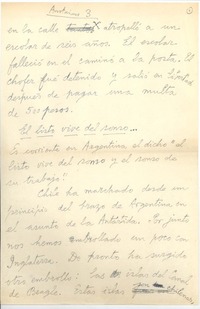 3
en la calle X atropelló a un
escolar de seis años. El escolar
falleció en el camino a la posta. El
chofer fué detenido y salió en libertad
después de pagar una multa
de 500 pesos.
El listo vive del sonso...
Es corriente en Argentina el dicho "el
listo vive del sonso y el sonso de
su trabajo".
Chile ha marchado desde un
principio del brazo de Argentina en
el asunto de la Antártida. Por junto
nos hemos embrollado un poco con
Inglaterra. De pronto ha surgido
otro embrollo: las islas del canal
de Beagle. Estas islas